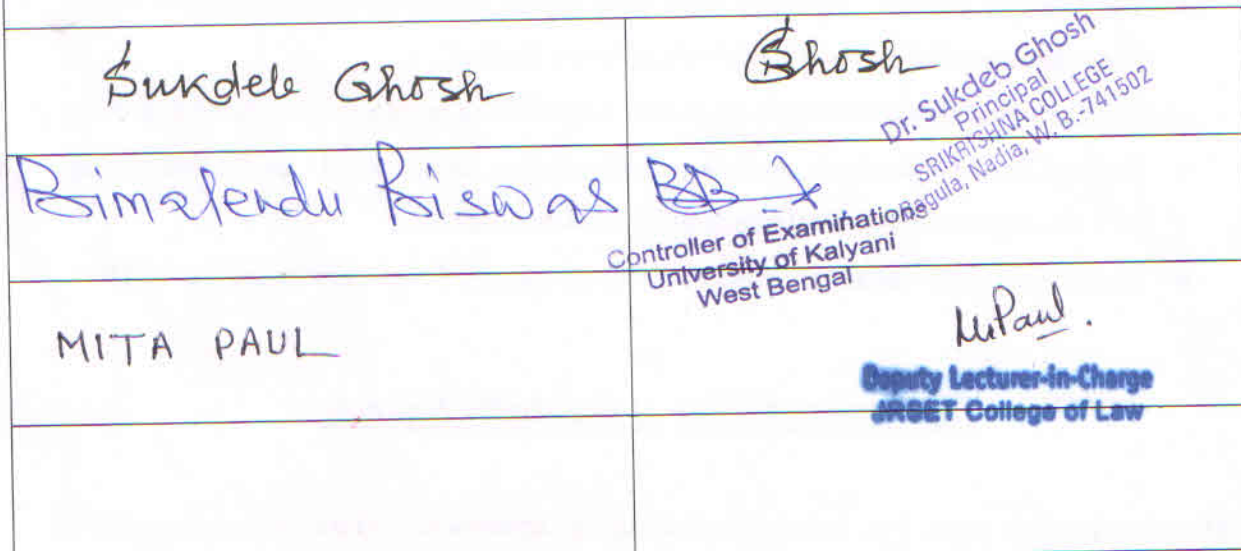 Sukdeb Ghosh
Ghosh
Dr. Sukdeb Ghosh
Principal
SRIKRISHNA COLLEGE
Bagula, Nadia, W. B.-741502
Bimalendu Biswas
Controller of Examinations
University of Kalyani
West Bengal
MITA PAUL
M.Paul.
Deputy Lecturer-in-Charge
JRSET College of Law